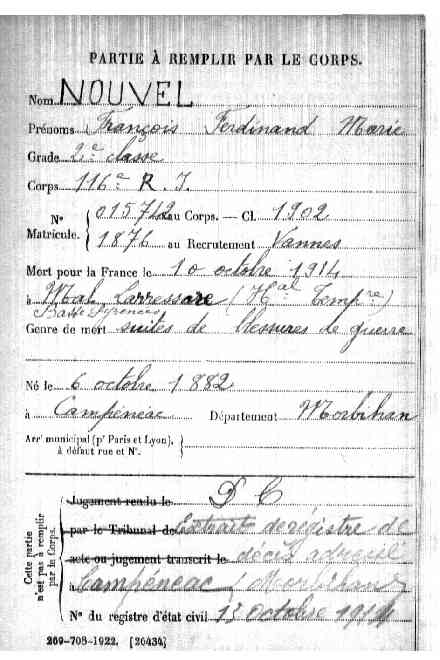 PARTIE À REMPLIR PAR LE CORPS.
Nom NOUVEL
Prénoms François Ferdinand Marie
Grade 2e classe
Corps 116e R. I.
N° Matricule. 015742 au Corps. — Cl. 1902
1876 au Recrutement Vannes
Mort pour la France le 10 octobre 1914
à Larressore (Hal Tempre)
Basses Pyrénées
Genre de mort suites de blessures de guerre
Né le 6 octobre 1882
à Campénéac Département Morbihan
Arrt municipal (pr Paris et Lyon), à défaut rue et N°.
Cette partie n'est pas à remplir par le Corps.
Jugement rendu le D C
par le Tribunal de Extrait de régistre de
acte ou jugement transcrit le décès adressé
à Campénéac (Morbihan)
N° du registre d'état civil 13 octobre 1914
269-708-1922. [26434]